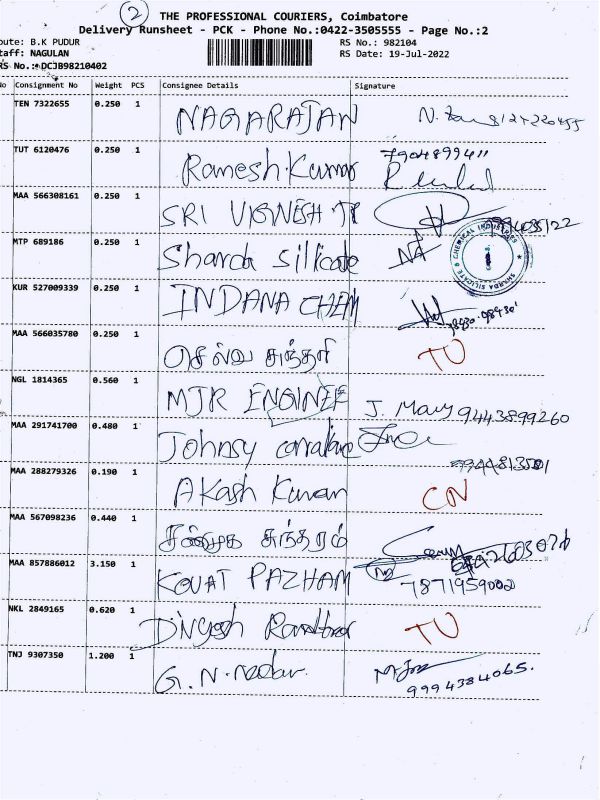 2
THE PROFESSIONAL COURIERS, Coimbatore
Delivery Runsheet - PCK - Phone No.:0422-3505555 - Page No.:2
oute: B.K PUDUR RS No.: 982104
taff: NAGULAN RS Date: 19-Jul-2022
RS No.: DCJB98210402
No Consignment No Weight PCS Consignee Details Signature
TEN 7322655 0.250 1 NAGARAJAN
TUT 6120476 0.250 1 Ramesh.Kumar 7904899411
MAA 566308161 0.250 1 SRI VIGNESH TR
MTP 689186 0.250 1 Sharda Sillicate
SHARDA SILICATE & CHEMICAL INDUSTRIES
KUR 527009339 0.250 1 INDANA CHEM
MAA 566035780 0.250 1 செல்வ சுந்தரி TU
NGL 1814365 0.560 1 MJR ENGINEE J. Mary 9443899260
MAA 291741700 0.480 1 Johnsy
MAA 288279326 0.190 1 Akash Kumar CN
MAA 567098236 0.440 1 சண்முக சுந்தரம்
MAA 857886012 3.150 1 KOVAI PAZHAM 7871959002
NKL 2849165 0.620 1 TU
TNJ 9307350 1.200 1 G.N.nadar 9994384065.